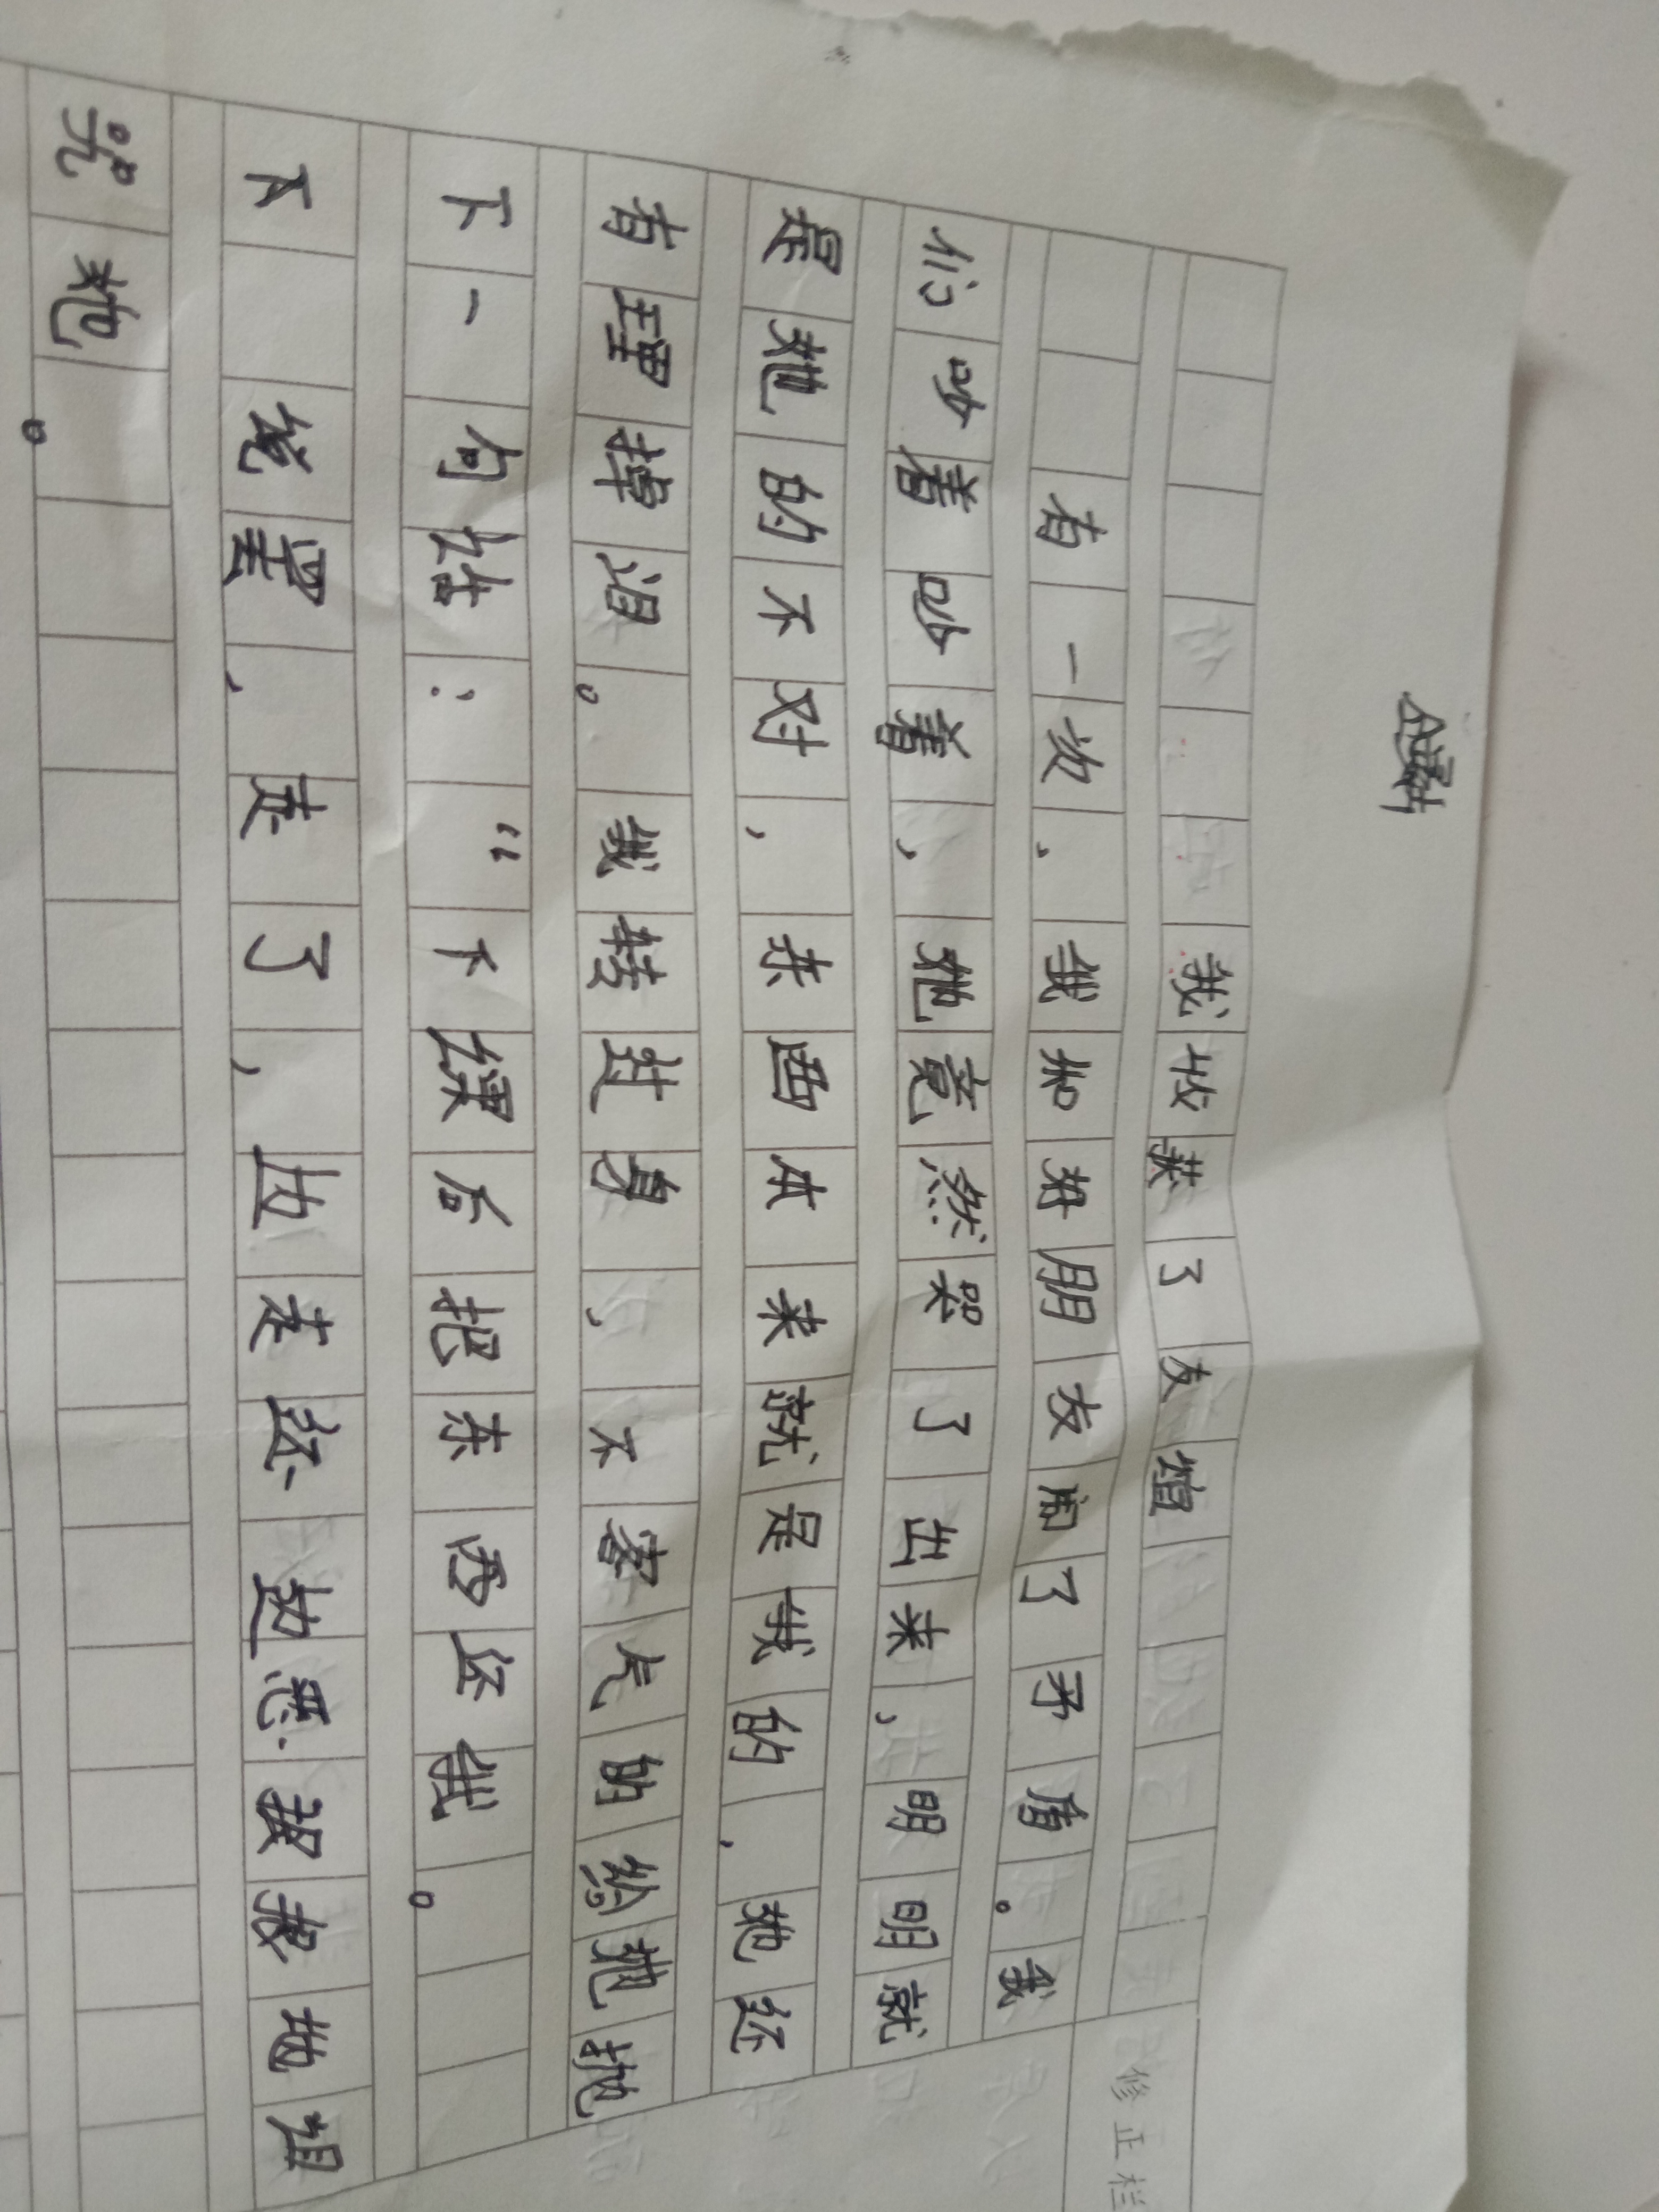 我收获了友谊
有一次，我和好朋友闹了矛盾。我
们吵着吵着，她竟然哭了出来，明明就
是她的不对，东西本来就是我的，她还
有理掉泪。我转过身，不客气的给她抛
下一句话：“下课后把东西还我。
下 坐，走了，走还恶狠狠地
完 她。
修正栏